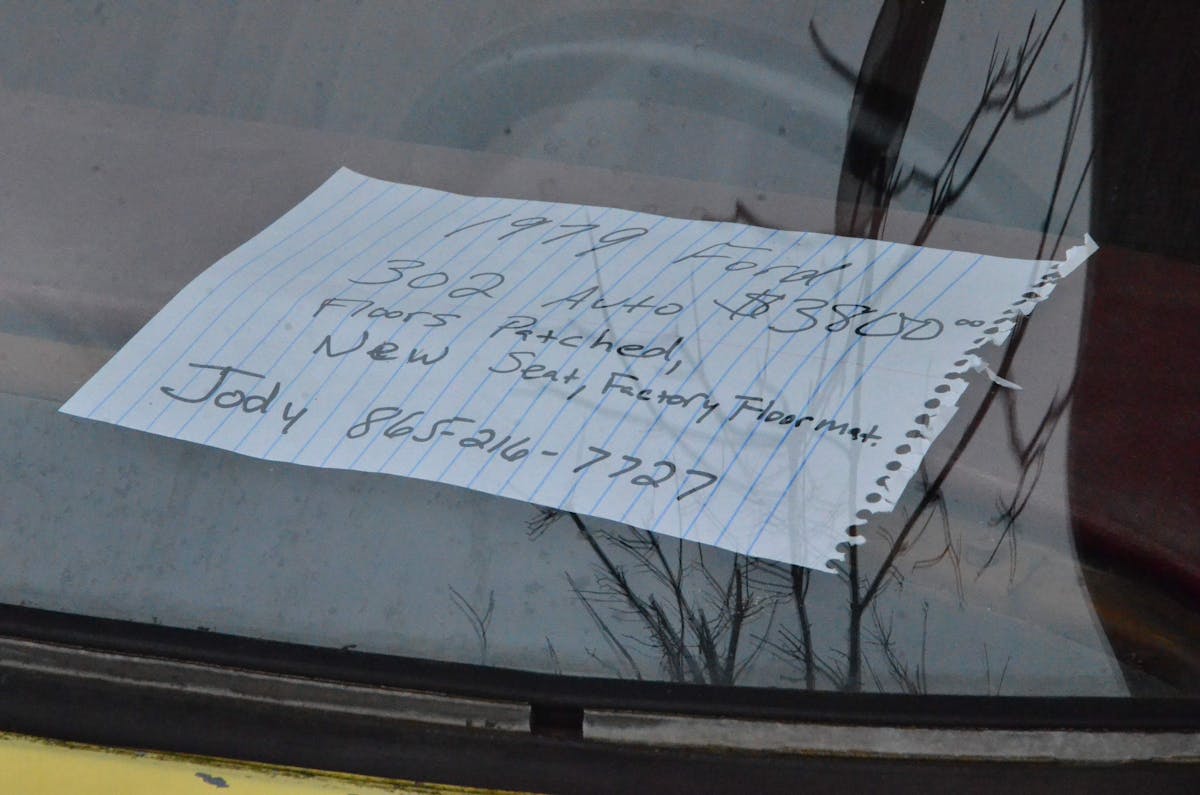 1979 Ford
302 Auto $3800⁰⁰
Floors Patched,
New Seat, Factory Floormat.
Jody 865-216-7727